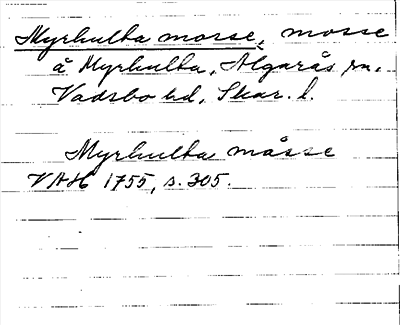 Myrhulta mosse, mosse
å Myrhulta, Algarås sn,
Vadsbo hd, Skar. l.
Myrhulta måsse
VAH 1755, s. 305.